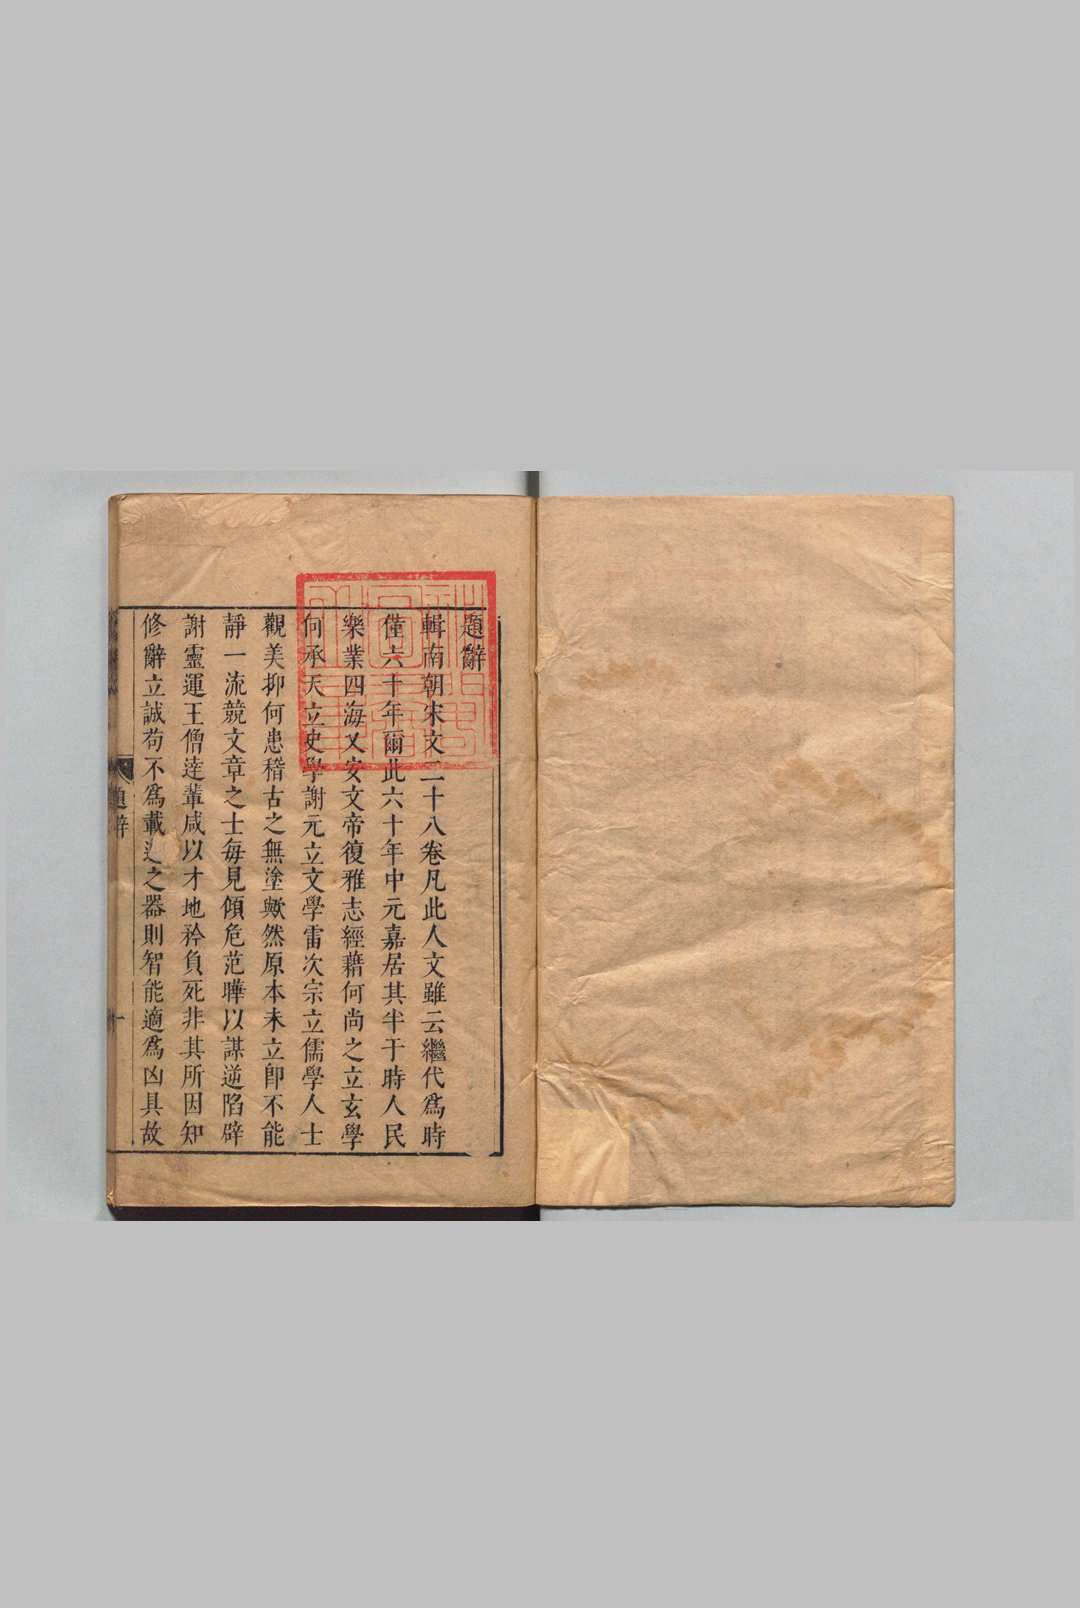 題辭
輯南朝宋文二十八卷凡此人文雖云繼代為時
僅六十年爾此六十年中元嘉居其半于時人民
樂業四海乂安文帝復雅志經藉何尚之立玄學
何承天立史學謝元立文學雷次宗立儒學人士
觀美抑何患稽古之無塗歟然原本未立即不能
靜一流競文章之士每見傾危范曄以謀逆陷辟
謝靈運王僧達輩咸以才地矜負死非其所因知
修辭立誠苟不為載之器則智能適為凶具故
題辭
一